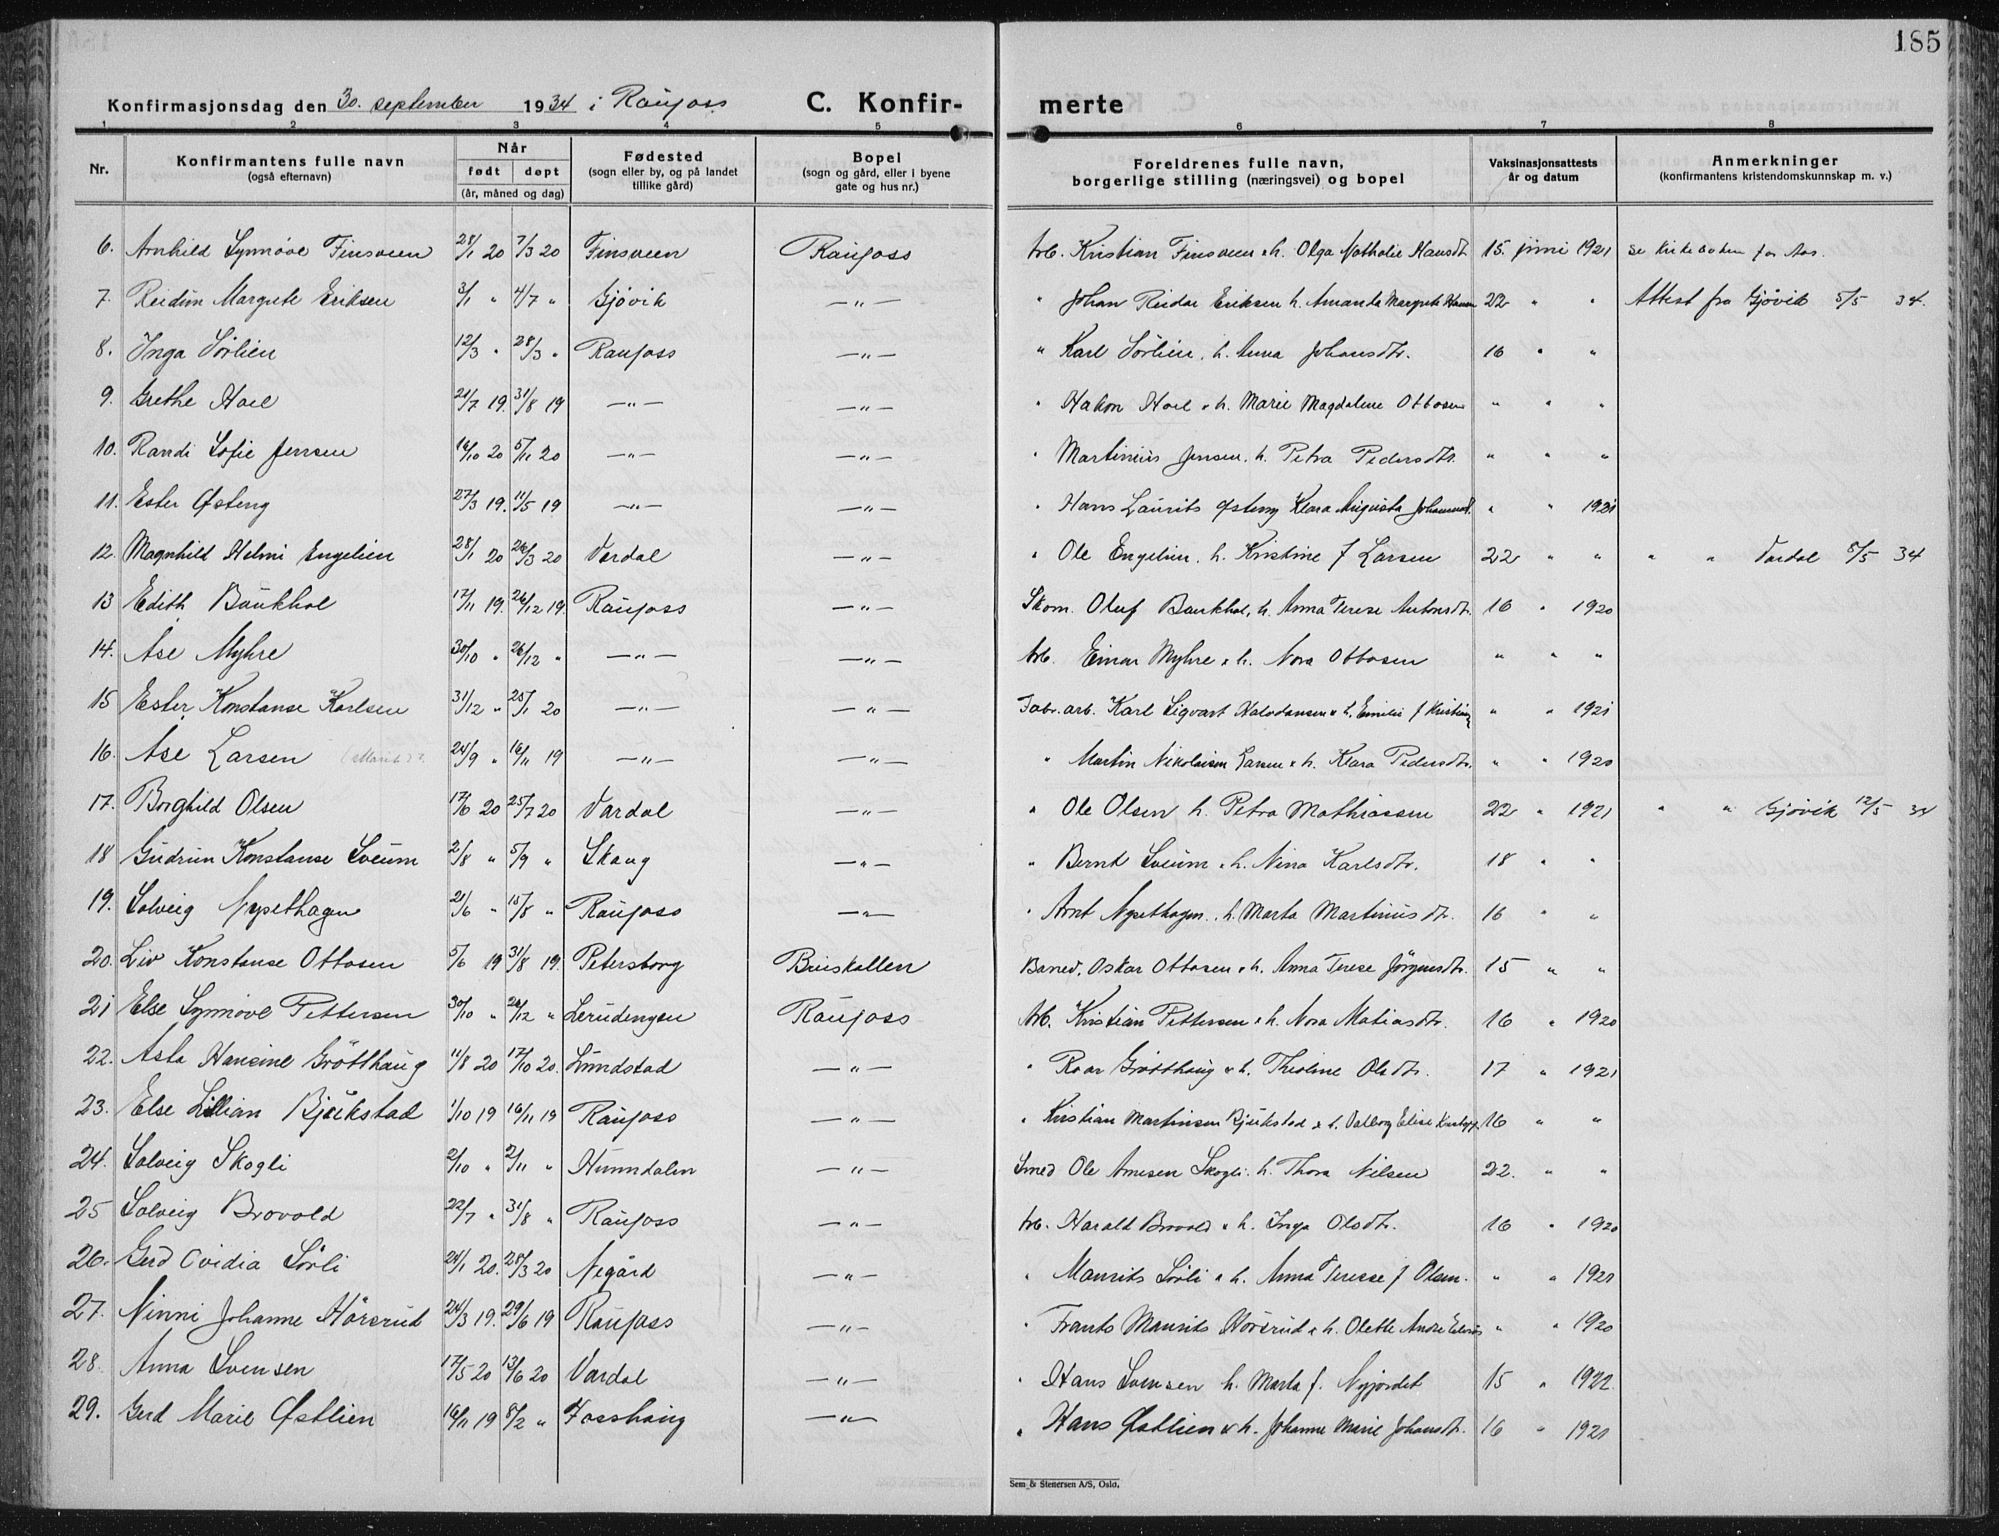 185
Konfirmasjonsdag den 30. september 1934 i Raufoss. C. Konfir- merte
1 2 3 4 5 6 7 8
Nr. Konfirmantens fulle navn (også efternavn) Når født døpt (år, måned og dag) Fødested (sogn eller by, og på landet tillike gård) Bopel (sogn og gård, eller i byene gate og hus nr.) Foreldrenes fulle navn, borgerlige stilling (næringsvei) og bopel Vaksinasjonsattests år og datum Anmerkninger (konfirmantens kristendomskunnskap m. v.)
6. Arnhild Synnøve Finsveen 28/1 20 7/3 20 Finsveen Raufoss Arb. Kristian Finsveen & h. Olga Nathalie Hansdt. 15. juni 1921 se kirkeboken for Aas.
7. Reidun Margrete Eriksen 3/1 " 4/7 " Gjøvik —"— " Johan Reidar Eriksen h. Amanda Margrete Hansen 22 " " Attest fra Gjøvik 5/5 34.
8. Inga Sørlien 12/3 " 28/3 " Raufoss —"— " Karl Sörlien, h. Anna Johansdtr. 16 " "
9. Grethe Hoel 21/7 19. 31/8 19 —"— —"— " Hakon Hoel & h. Marie Magdalene Ottosen " " "
10. Randi Sofie Jensen 14/10 20 5/11 20 —"— —"— " Martinius Jensen. h. Petra Pedersdtr. " " "
11. Ester Østeng 27/3 19. 11/5 19 —"— —"— " Hans Laurits Østeng Klara Augusta Johannesd. " " 1921
12. Magnhild Helmi Engelien 28/1 20 26/3 20 Vardal —"— " Ole Engelien. h. Kristine f Larsen 22 " " " " Vardal 8/5 34
13 Edith Baukhol 17/11 19. 26/12 19. Raufoss —"— Skom. Oluf Baukhol, h. Anna Terese Antonsdt. 16 " 1920
14. Åse Myhre 30/10 " 26/12 " —"— —"— Arb. Einar Myhre & h. Nora Ottosen " " "
15 Ester Konstanse Karlsen 31/12 " 25/1 20 —"— —"— Fabr. arb. Karl Sigvart Halvdansen & h. Emilie f Kristians " " 1921
16. Åse Larsen (Marit)? 24/9 " 16/11 19 —"— —"— " Martin Nikolaisen Larsen & h. Klara Pedersdtr. " " 1920
17. Borghild Olsen 17/6 20 25/7 20 Vardal —"— " Ole Olsen h. Petra Mathiassen 22 " 1921 " " Gjøvik 12/5 34
18 Gudrun Konstanse Sveum 2/8 " 5/9 " Skaug —"— " Bernt Sveum & h. Nina Karlsdtr. 18 " "
19. Solveig Nysethagen 21/6 " 15/8 " Raufoss —"— " Arnt Nysethagen. h. Marta Martinius dtr. 16 " "
20. Liv Konstanse Ottosen 5/6 19 31/8 19. Petersborg Bruskallen Baned. Oskar Ottosen & h. Anna Terese Jørgensdtr. 15 " "
21 Else Synnøve Pettersen 30/10 " 26/12 " Lerudengen Raufoss Arb. Kristian Pettersen & h. Nora Matiasdtr. 16 " 1920
22. Asta Hansine Grötthaug 11/8 20 17/10 20. Lundstad —"— " Roar Grötthaug & h. Theoline Olsdtr. 17 " 1921
23. Else Lillian Bjørkstad 1/10 19 16/11 19 Raufoss —"— " Kristian Martinsen Bjørkstad & h. Valborg Elise 16 " "
24. Solveig Skogli 2/10 " 2/11 " Hunndalen —"— Smed Ole Arnesen Skogli. h. Thora Nilsen 22. " "
25 Solveig Brovold 22/7 " 31/8 " Raufoss —"— Arb. Harald Brovold & h. Inga Olsdtr. 16 " 1920
26. Gerd Ovidia Sörli 24/1 20. 28/3 20 Negård —"— " Maurits Sörli & h. Anna Terese f Olsen. " " 1921
27. Ninni Johanne Hörsrud 24/3 19. 29/6 19 Raufoss —"— " Frants Maurits Hörsrud & h. Olette Andre " " 1920
28. Anna Svensen 17/5 20 13/6 20 Vardal —"— " Hans Svensen h. Marta f. Nyjordet 15 " 1922
29. Gerd Marie Østlien 16/11 19 8/2 " Fosshaug —"— " Hans Østlien & h. Johanne Marie Johansdt. 16 " 1921
Sem & Stenersen A/S, Oslo.